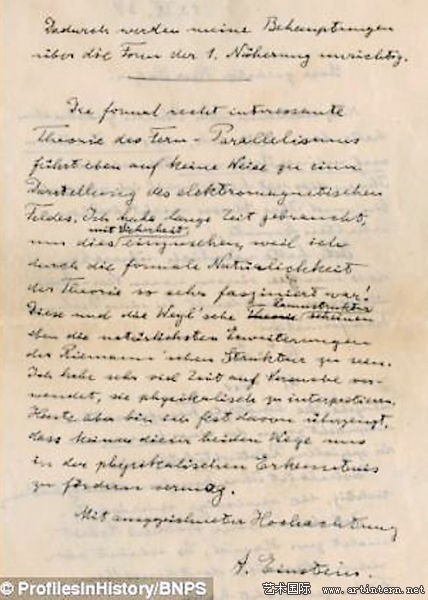 Dadurch werden meine Behauptungen
über die Form der 1. Näherung unrichtig.
Die formal recht interessante
Theorie des Fern-Parallelismus
führt eben auf keine Weise zu einer
Darstellung des elektromagnetischen
Feldes. Ich habe lange Zeit gebraucht,
mit Sicherheit
um dies einzusehen, weil ich
durch die formale Natürlichkeit
der Theorie so sehr fasziniert war!
Raumstruktur
Diese und die Weyl'sche Theorie scheinen
eben die natürlichsten Erweiterungen
der Riemann'schen Struktur zu sein.
Ich habe sehr viel Zeit auf Versuche ver-
wendet, sie physikalisch zu interpretieren.
Heute aber bin ich fest davon überzeugt,
dass keiner dieser beiden Wege uns
in der physikalischen Erkenntnis
zu fördern vermag.
Mit ausgezeichneter Hochachtung
A. Einstein.
© ProfilesInHistory/BNPS
艺术国际 : www.artintern.net